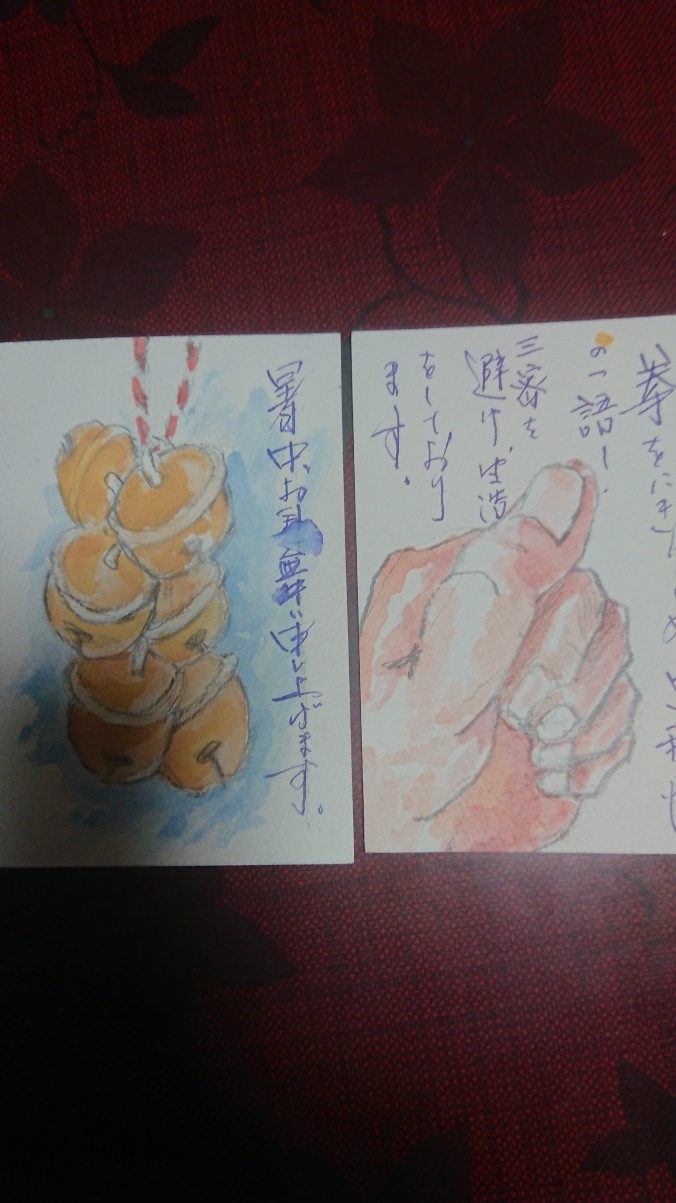 暑中お見舞い申し上げます。
拳をにぎ
の一語し、
三密を
避け、生活
をしており
ます。